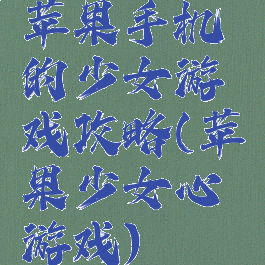 苹果手机
的少女游
戏攻略(苹
果少女心
游戏)